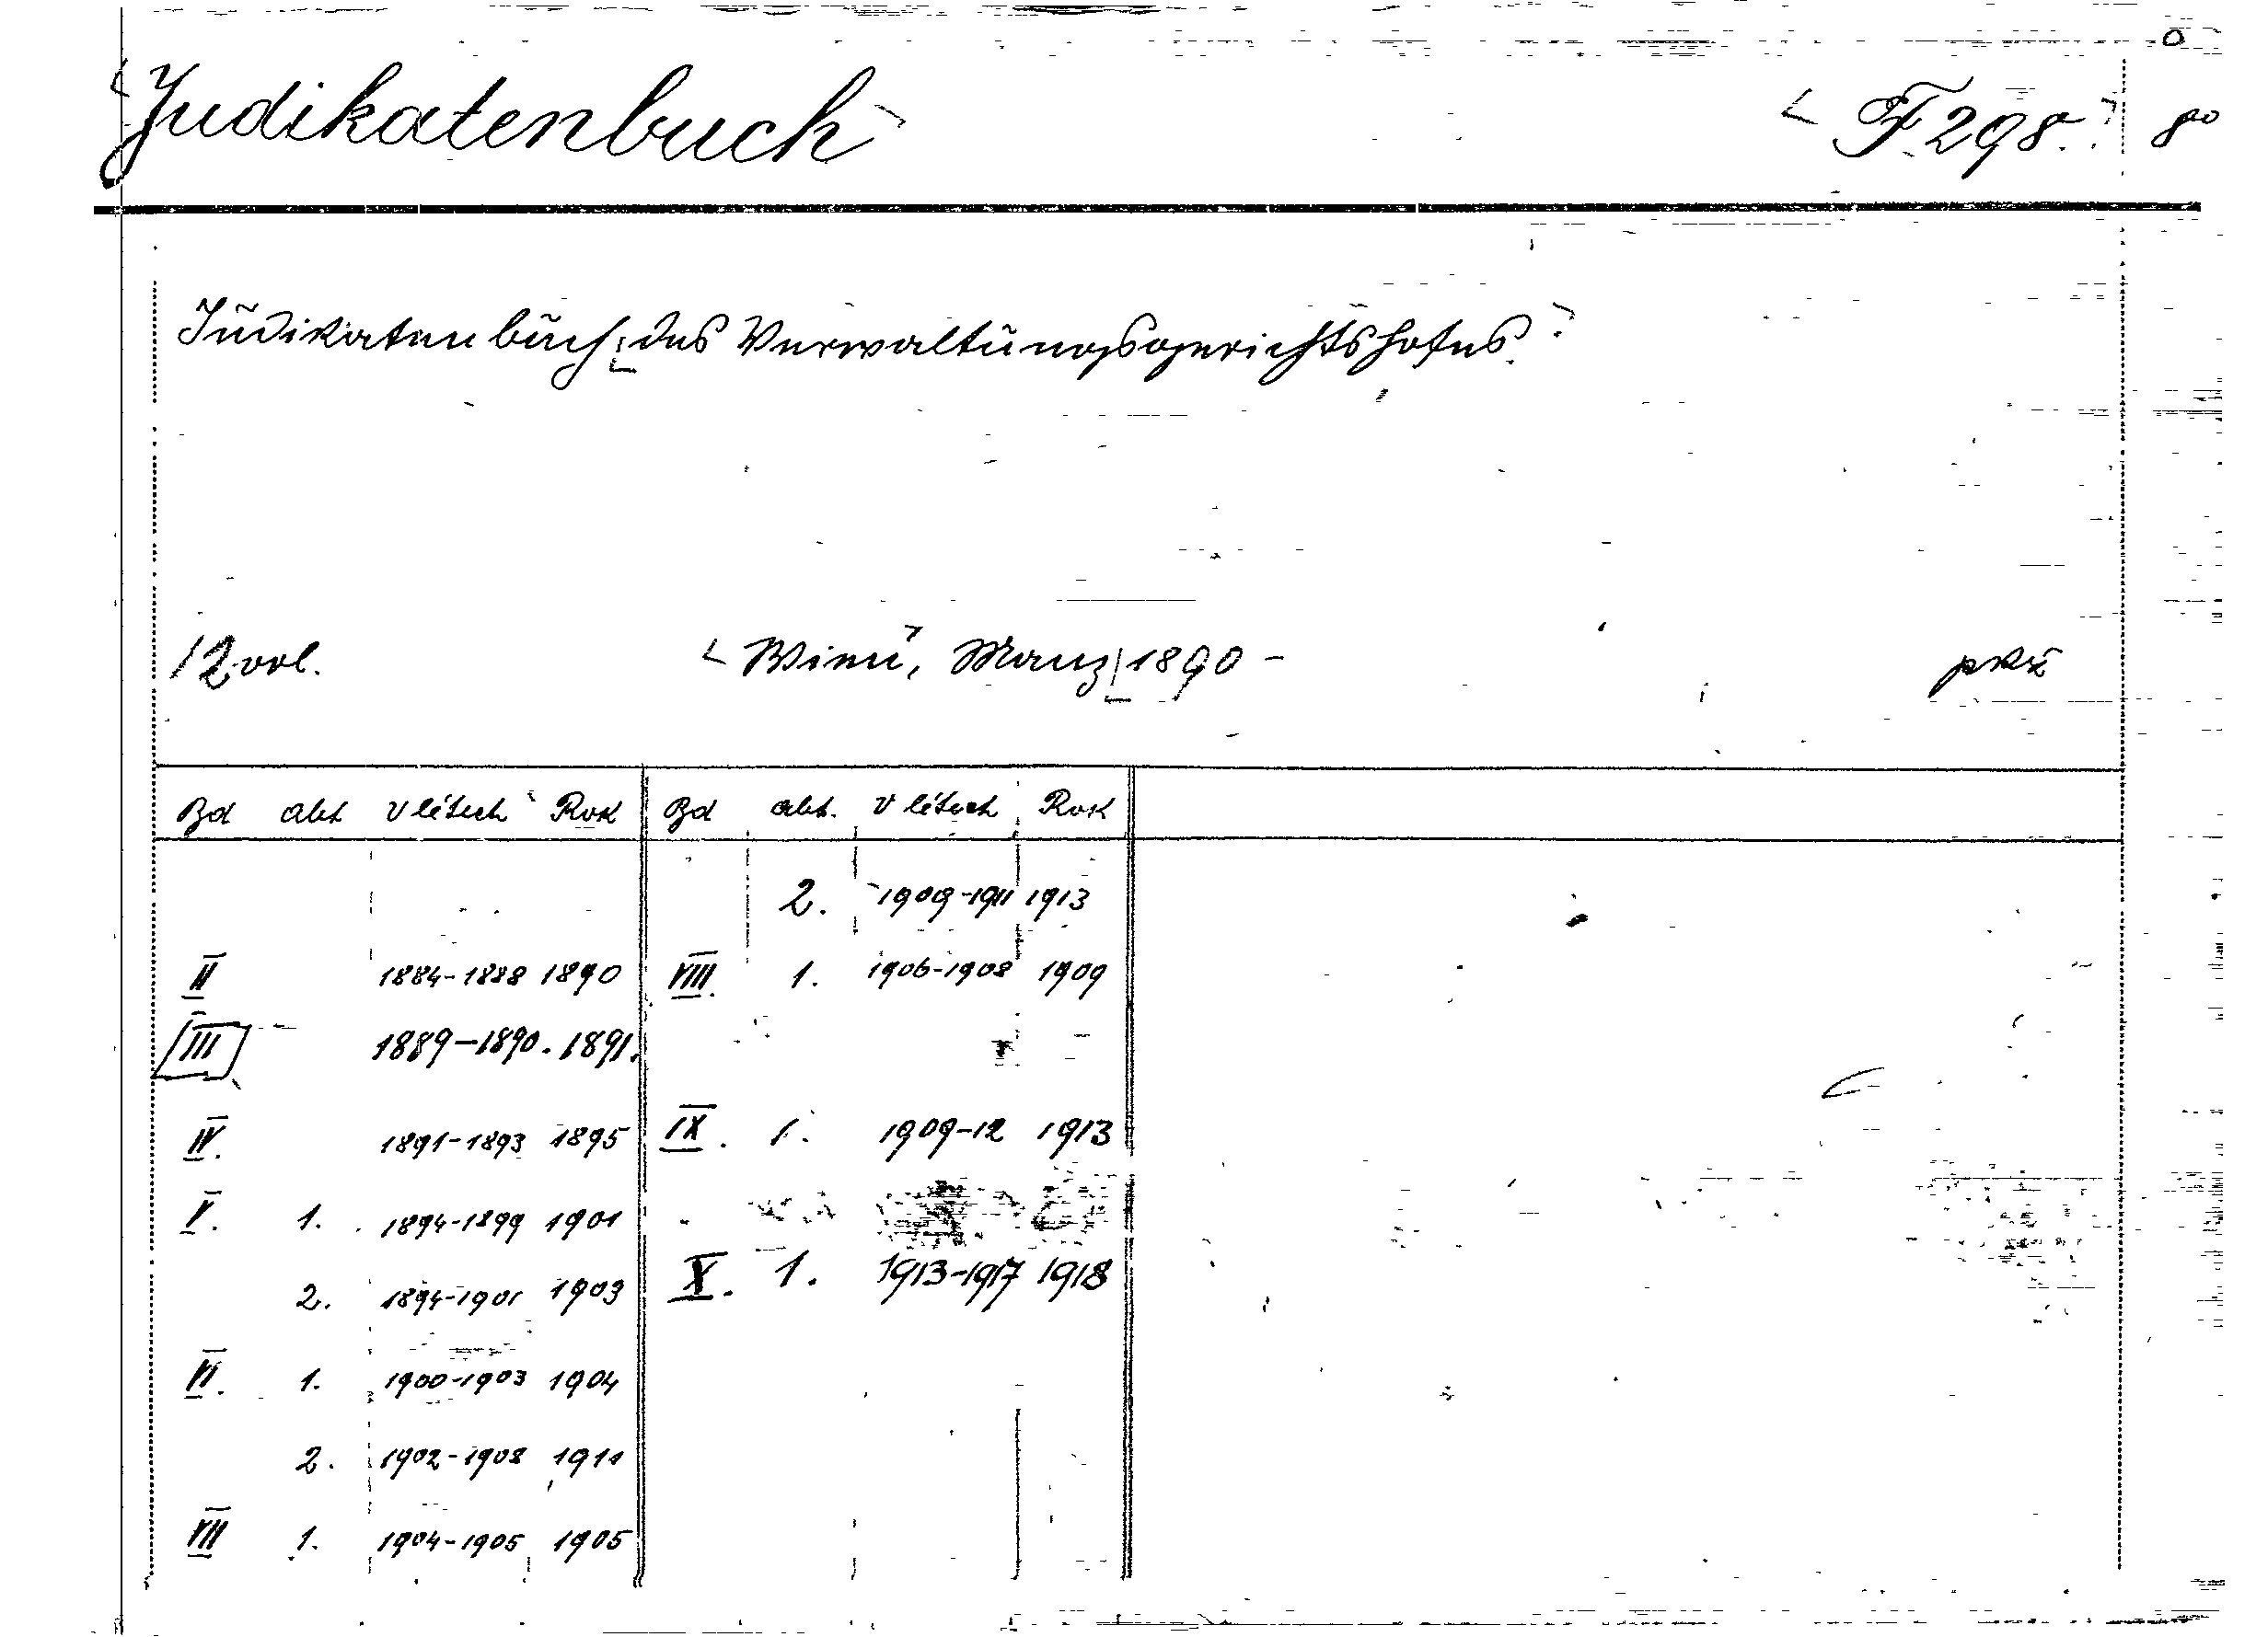 Judikatenbuch F 298. 8°
Judikatenbuch des Verwaltungsgerichtshofes.
12 vol. Wien, Manz 1890 -
Bd Abt V létech Rok Bd Abt. V létech Rok
2. 1909-1911 1913
II 1884-1888 1890 VIII. 1. 1906-1908 1909
III 1889-1890. 1891.
IV. 1891-1893 1895 IX. 1. 1909-12 1913
V. 1. 1894-1899 1901
2. 1894-1901 1903 X. 1. 1913-1917 1918
VI. 1. 1900-1903 1904
2. 1902-1908 1911
VII 1. 1904-1905 1905